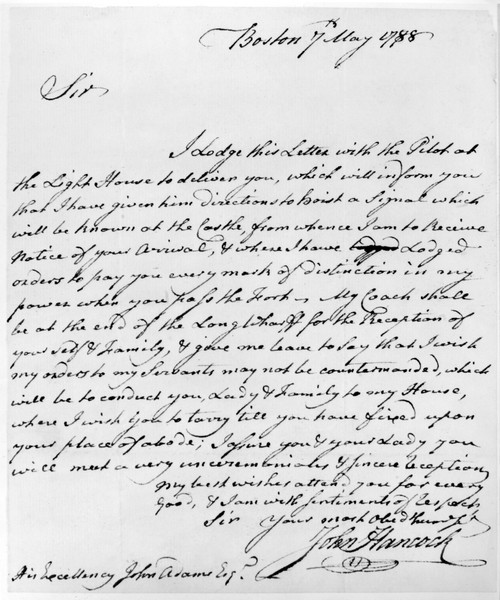 Boston 7th May 1788
Sir
I Lodge this Letter with the Pilot at
the Light House to deliver you, which will inform you
that I have given him directions to hoist a Signal which
will be known at the Castle, from whence I am to Receive
Notice of your Arrival, & where I have Lodged
orders to pay you every mark of distinction in my
power when you pass the Fort, My Coach shall
be at the end of the Long Wharff for the Reception of
your self & Family, & give me leave to say that I wish
my orders to my Servants may not be countermanded, which
will be to conduct you, Lady & Family to my House,
where I wish you to tarry till you have fixed upon
your place of abode; I assure you & your Lady you
will meet a very unceremonious & sincere Reception
my best wishes attend you for every
Good, & I am with sentiments of Respect
Sir Your most Obed
John Hancock
His Excellency John Adams Esqr.